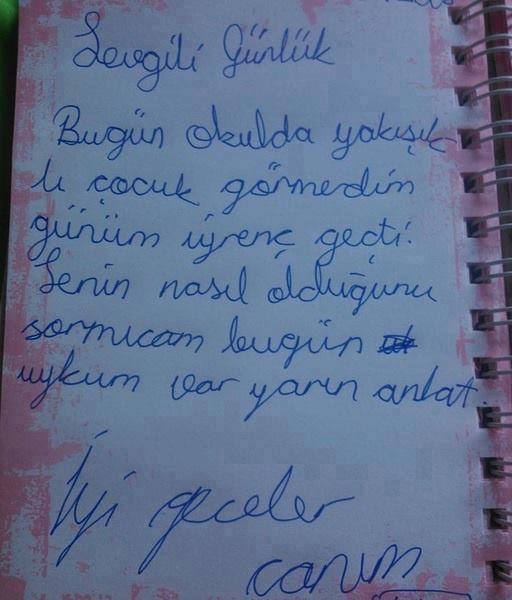 Sevgili Günlük
Bugün okulda yakışık
lı çocuk görmedim
günüm iğrenç geçti.
Senin nasıl olduğunu
sormıcam bugün
uykum var yarın anlat.
İyi geceler
canım